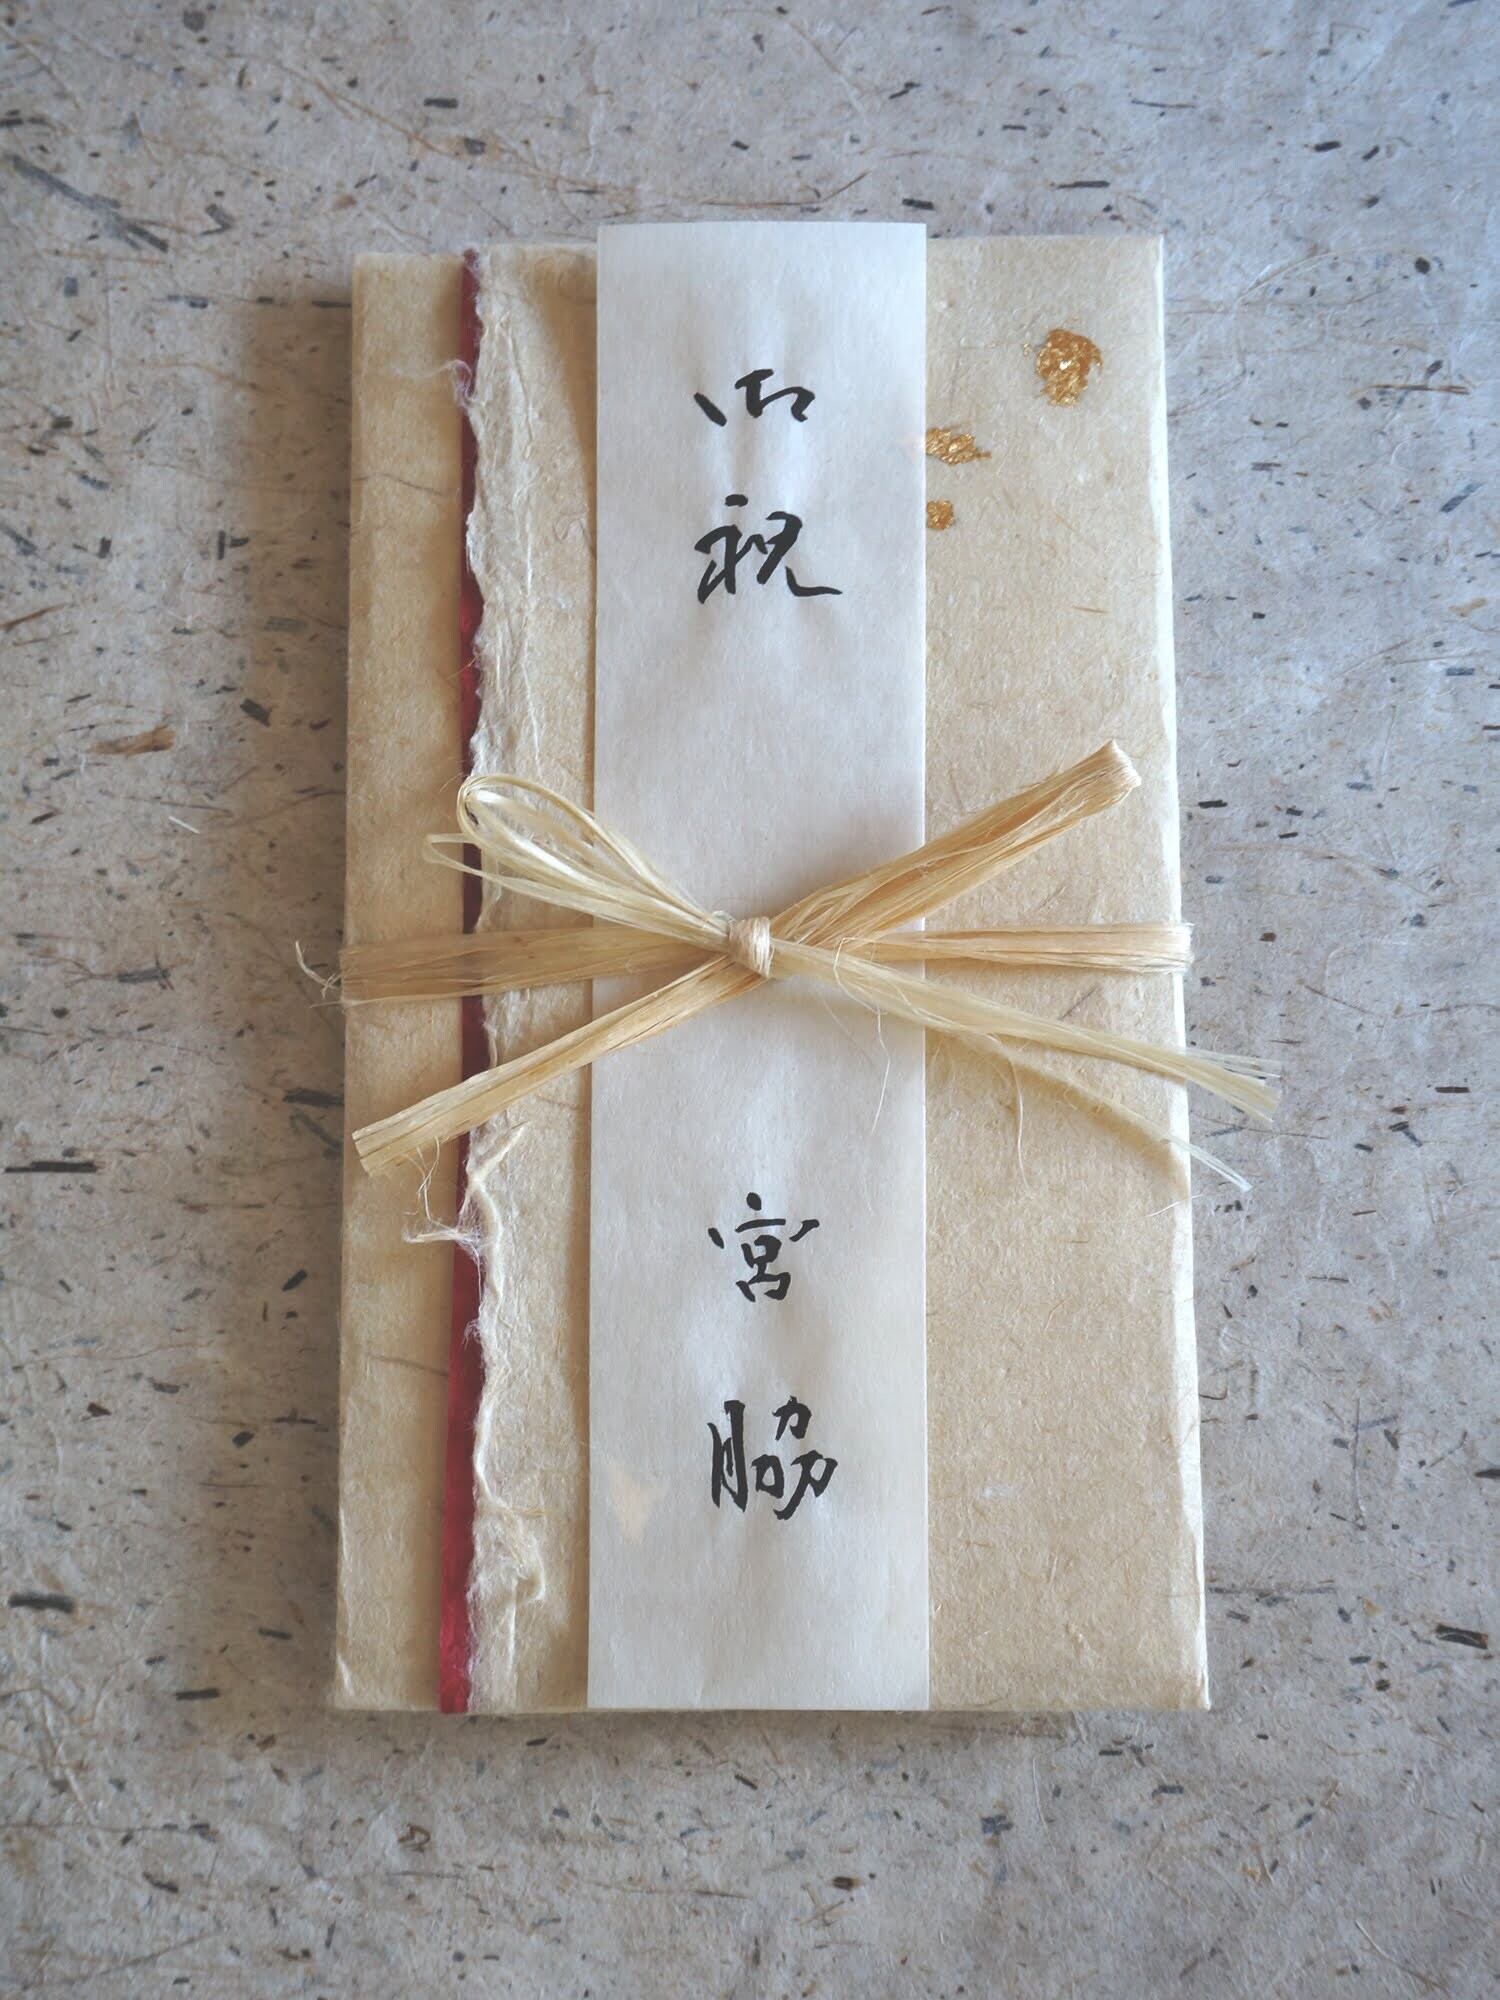 御祝
宮脇